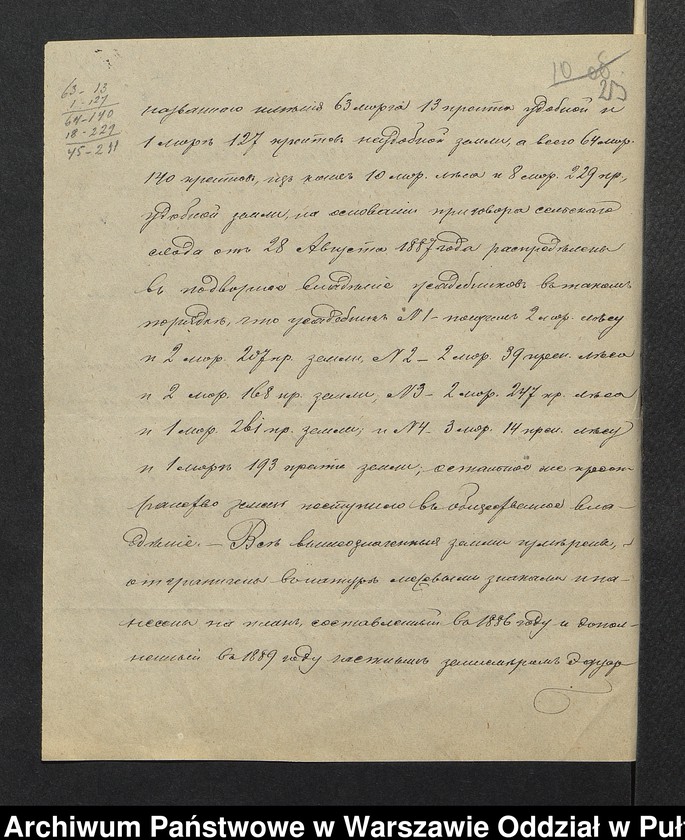 10 об
25
63 - 13
1 - 127
64 - 140
18 - 229
45 - 211
названнаго имѣнія 63 морга 13 прента удобной и
1 моргъ 127 прентовъ неудобной земли, а всего 64 мор.
140 прентовъ, изъ коихъ 10 мор. лѣса и 8 мор. 229 пр.,
удобной земли, на основаніи приговора сельскаго
схода отъ 28 Августа 1887 года распредѣлены
въ подворное владѣніе усадебниковъ въ такомъ
порядкѣ, что усадебникъ №1 - получилъ 2 мор. лѣсу
и 2 мор. 207 пр. земли, №2 - 2 мор. 39 прен. лѣса
и 2 мор. 168 пр. земли, №3 - 2 мор. 247 пр. лѣса
и 1 мор. 261 пр. земли; и №4 - 3 мор. 14 прен. лѣсу
и 1 моргъ 193 прента земли; остальное же прост-
ранство земли поступило въ общественное вла-
дѣніе. - Всѣ вышеозначенныя земли измѣрены,
отграничены въ натурѣ межевыми знаками и на-
несены на планъ, составленный въ 1886 году и допол-
ненный въ 1889 году частнымъ землемѣромъ Эдуар
Archiwum Państwowe w Warszawie Oddział w Puł